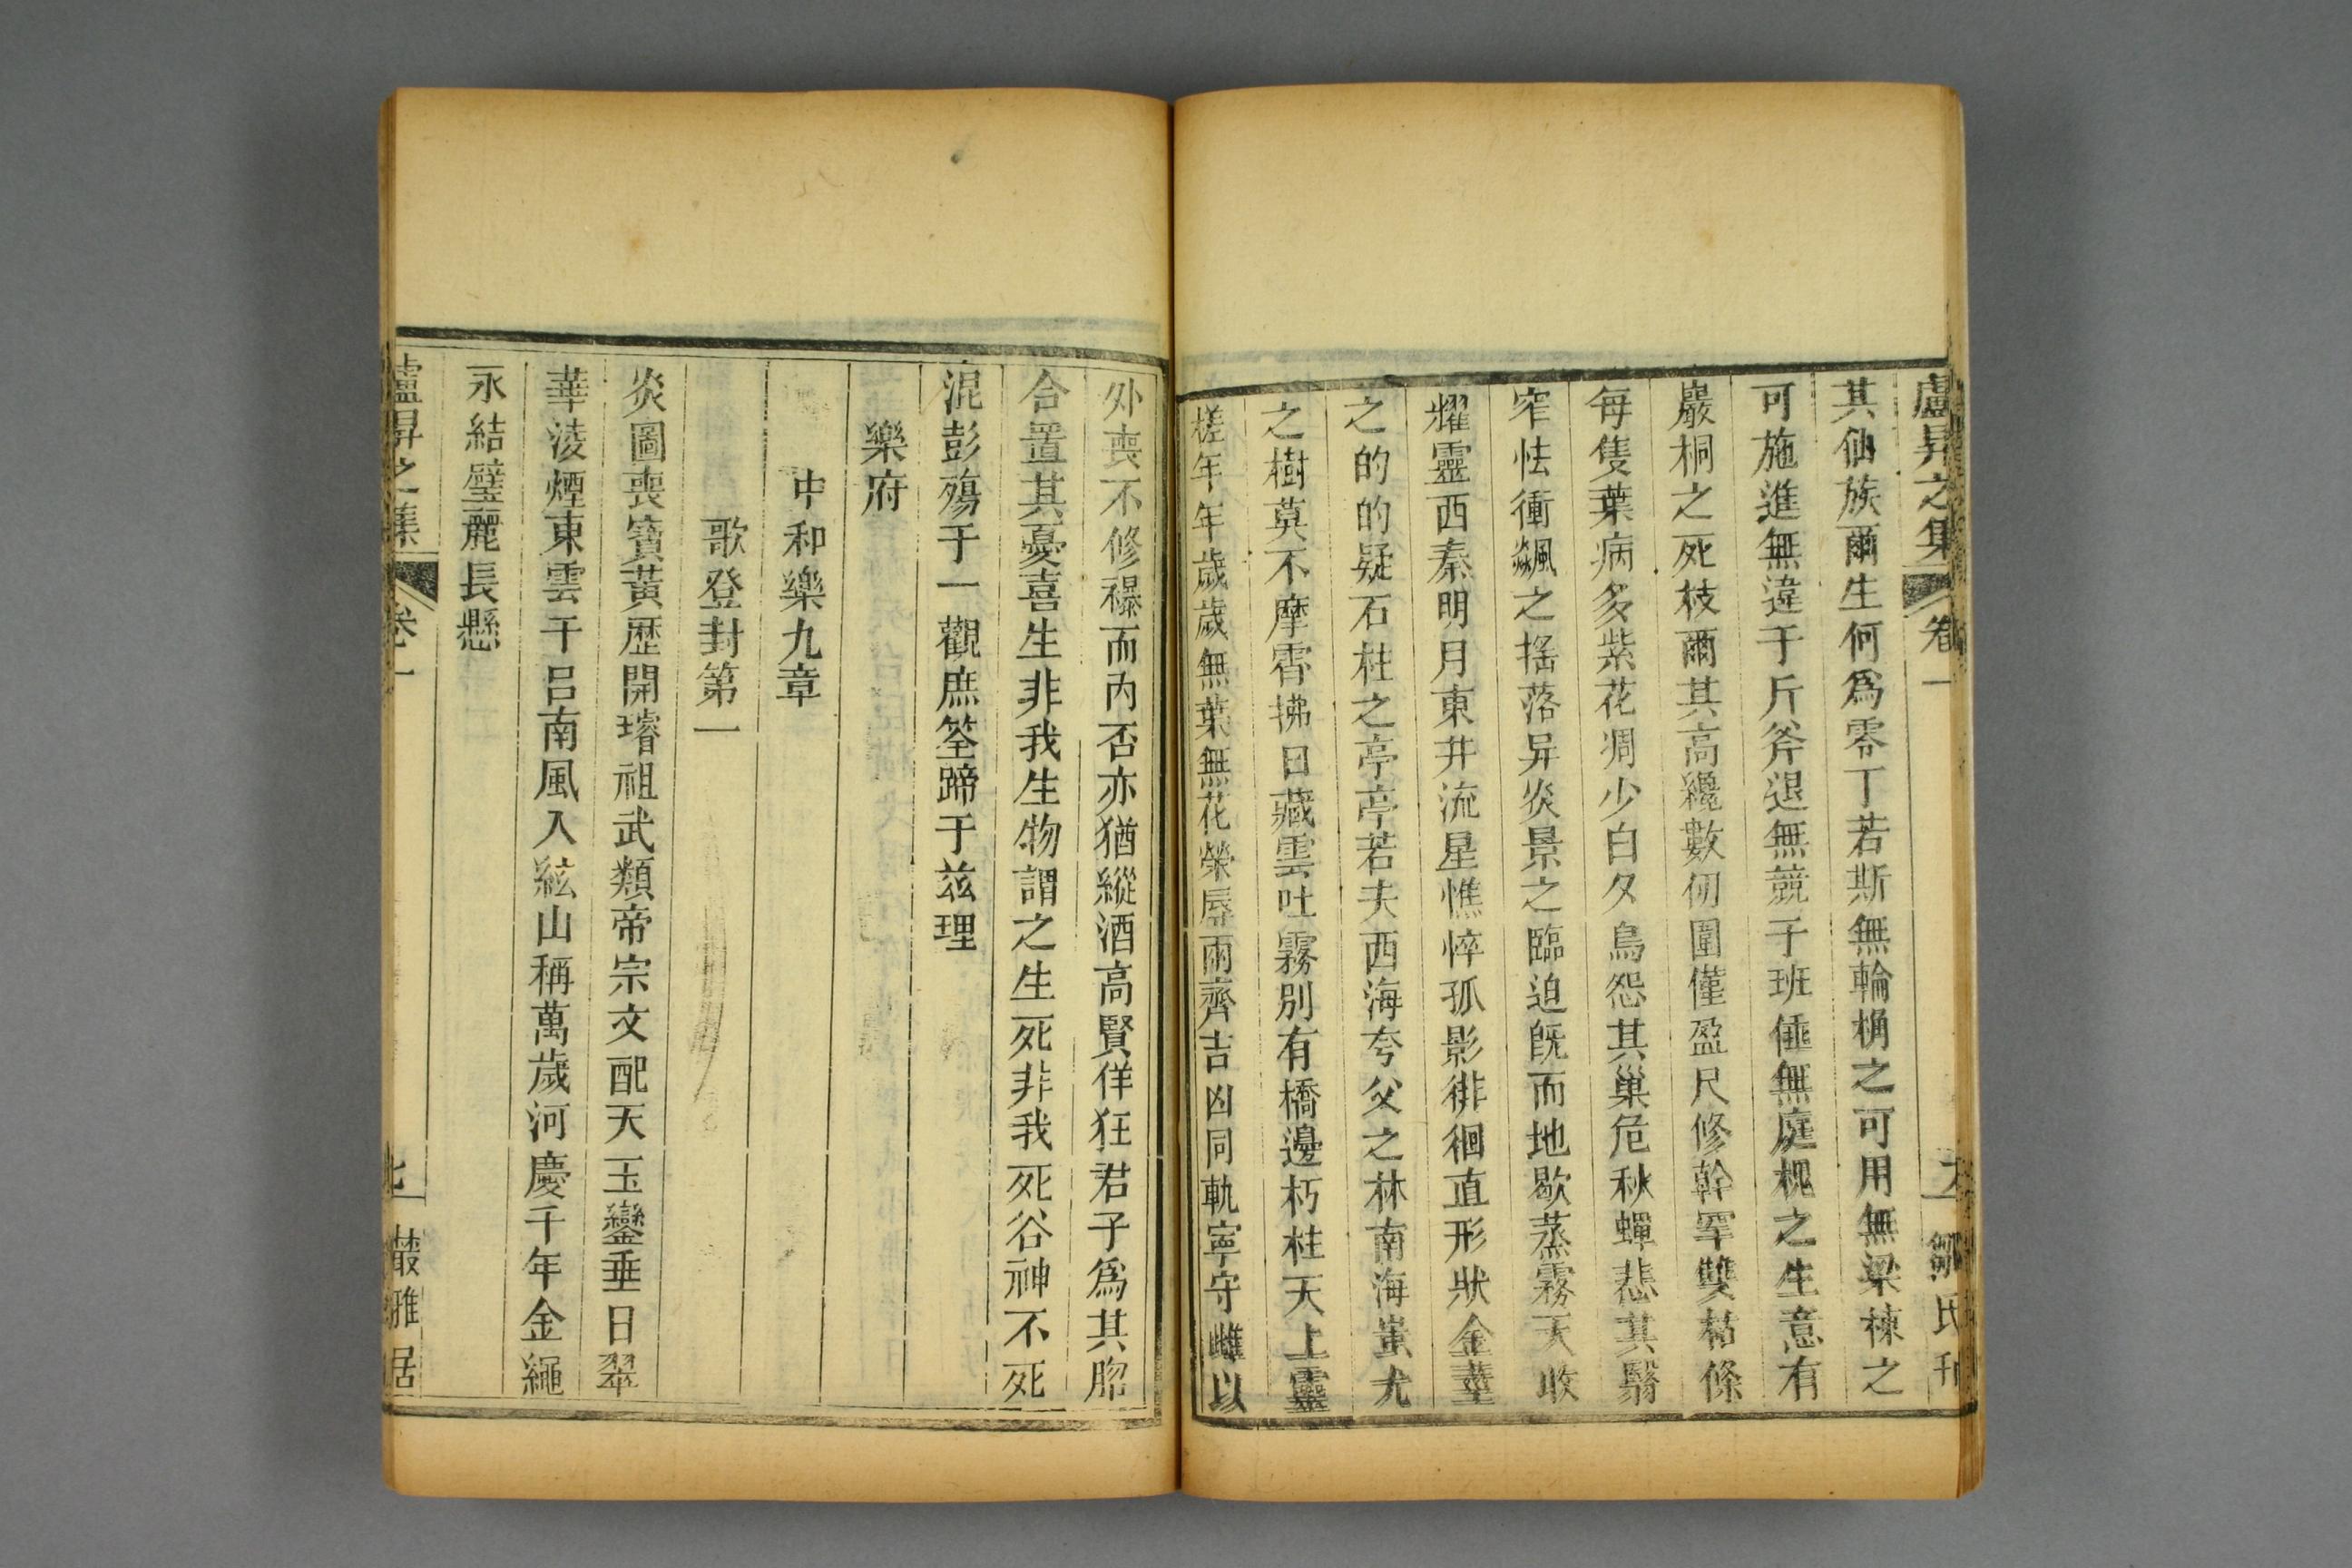 盧昇之集 卷一 六 鄒氏刊
其仙族爾生何爲零丁若斯無輪桷之可用無梁棟之
可施進無違于斤斧退無競于班倕無庭槐之生意有
巖桐之死枝爾其高纔數仞圍僅盈尺修幹罕雙枯條
每隻葉病多紫花凋少白夕鳥怨其巢危秋蟬悲其翳
窄怯衝飆之搖落畀炎景之臨迫既而地歇蒸霧天收
耀靈西秦明月東井流星憔悴孤影徘徊直形狀金莖
之的的疑石柱之亭亭若夫西海夸父之林南海蚩尤
之樹莫不摩霄拂日藏雲吐霧別有橋邊朽柱天上靈
槎年年歲歲無葉無花榮辱兩齊吉凶同軌寧守雌以
外喪不修襮而內否亦猶縱酒高賢佯狂君子爲其脗
合置其憂喜生非我生物謂之生死非我死谷神不死
混彭殤于一觀庶筌蹄于茲理
樂府
中和樂九章
歌登封第一
炎圖喪寶黃歷開璿祖武類帝宗文配天玉鑾垂日翠
華淩煙東雲干呂南風入絃山稱萬歲河慶千年金繩
永結璧麗長懸
盧昇之集 卷一 七 叢雅居